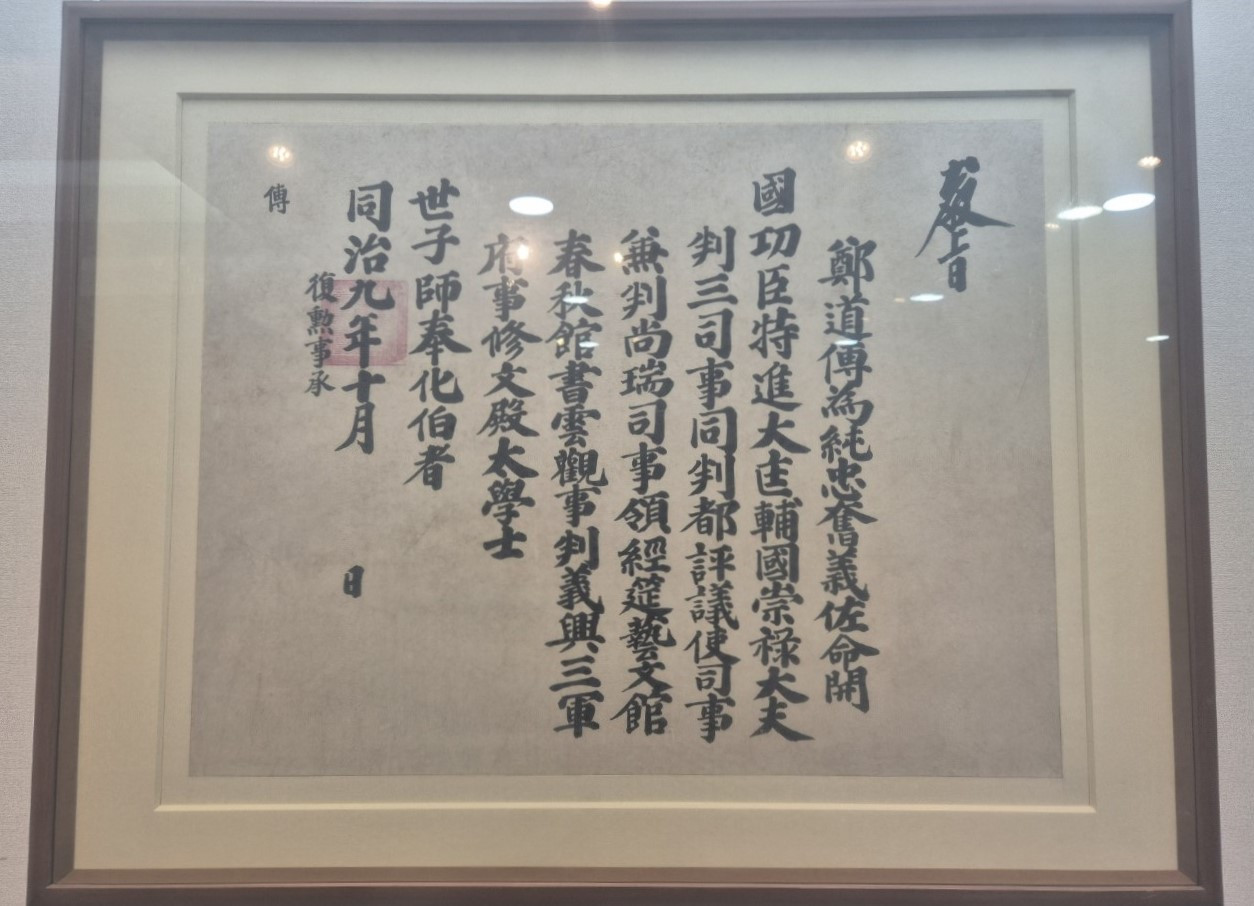 敎旨
鄭道傳為純忠奮義佐命開
國功臣特進大匡輔國崇祿大夫
判三司事同判都評議使司事
兼判尚瑞司事領經筵藝文館
春秋館書雲觀事判義興三軍
府事修文殿太學士
世子師奉化伯者
同治九年十月 日
復勳事承
傳